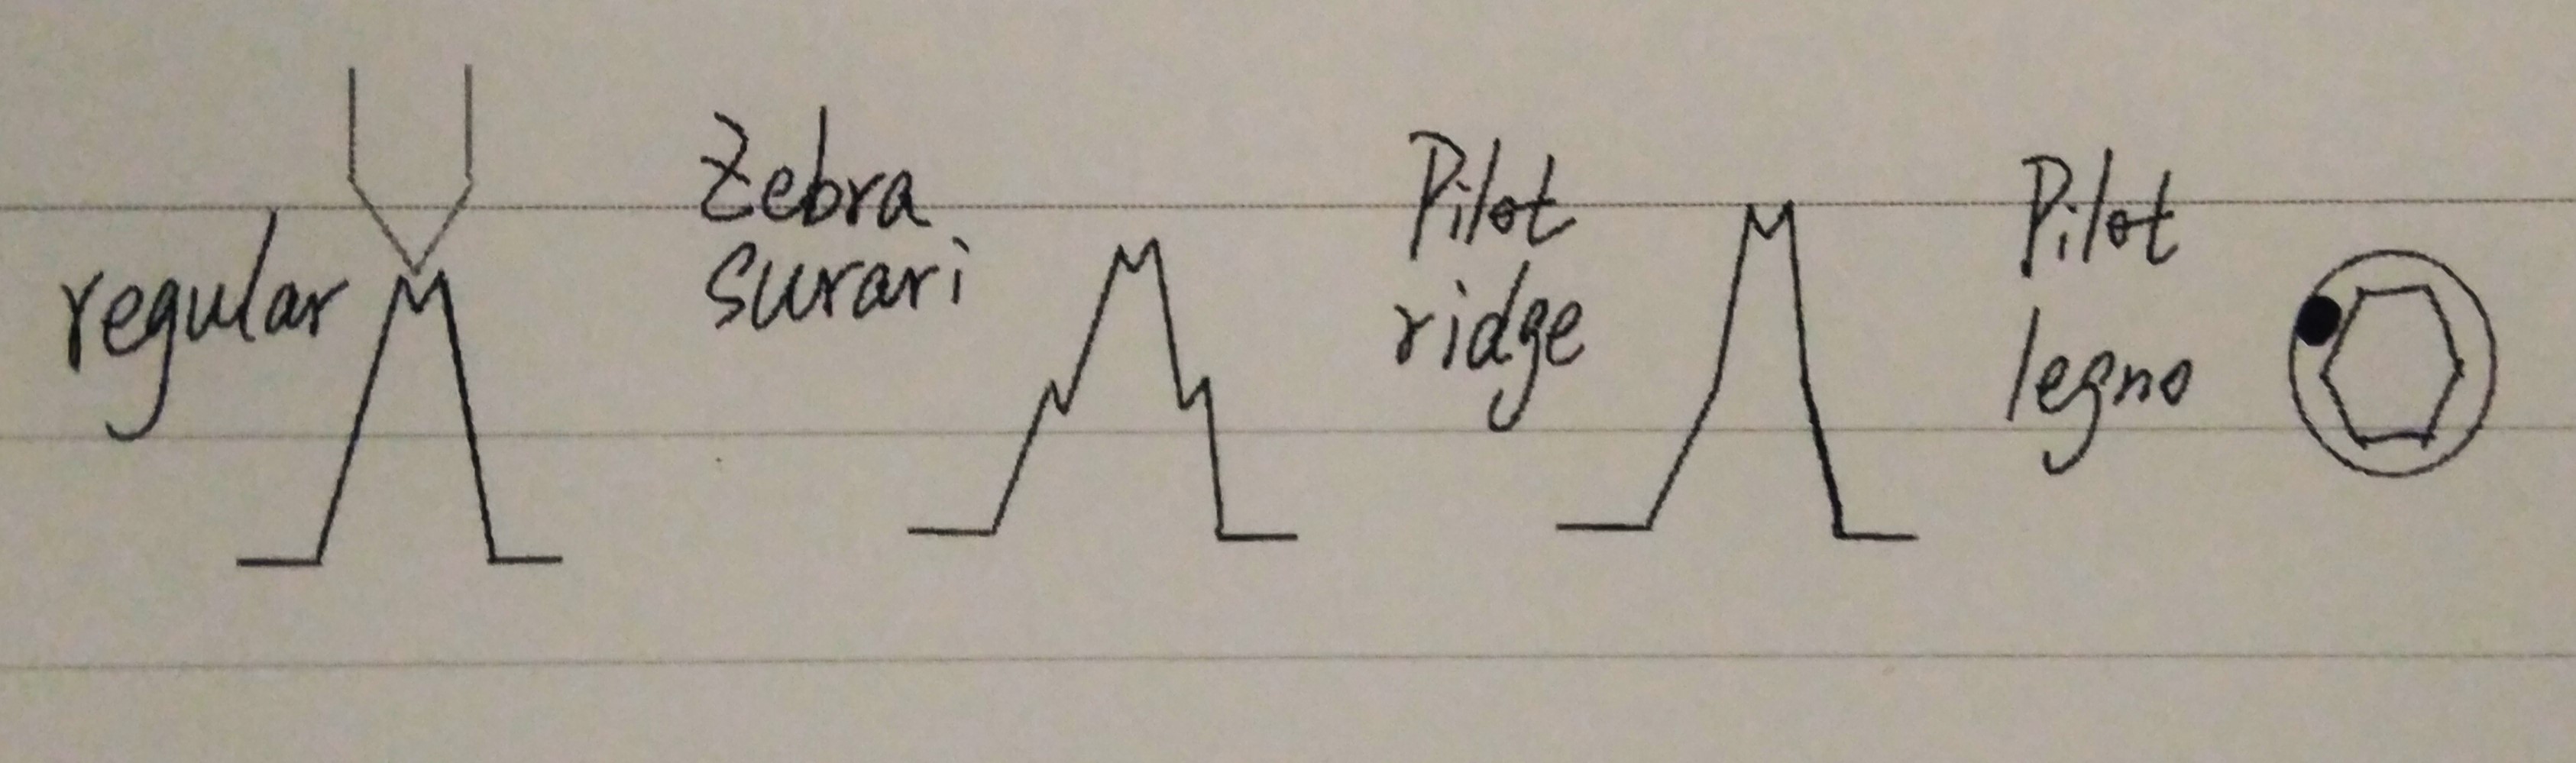 regular
Zebra
surari
Pilot
ridge
Pilot
legno